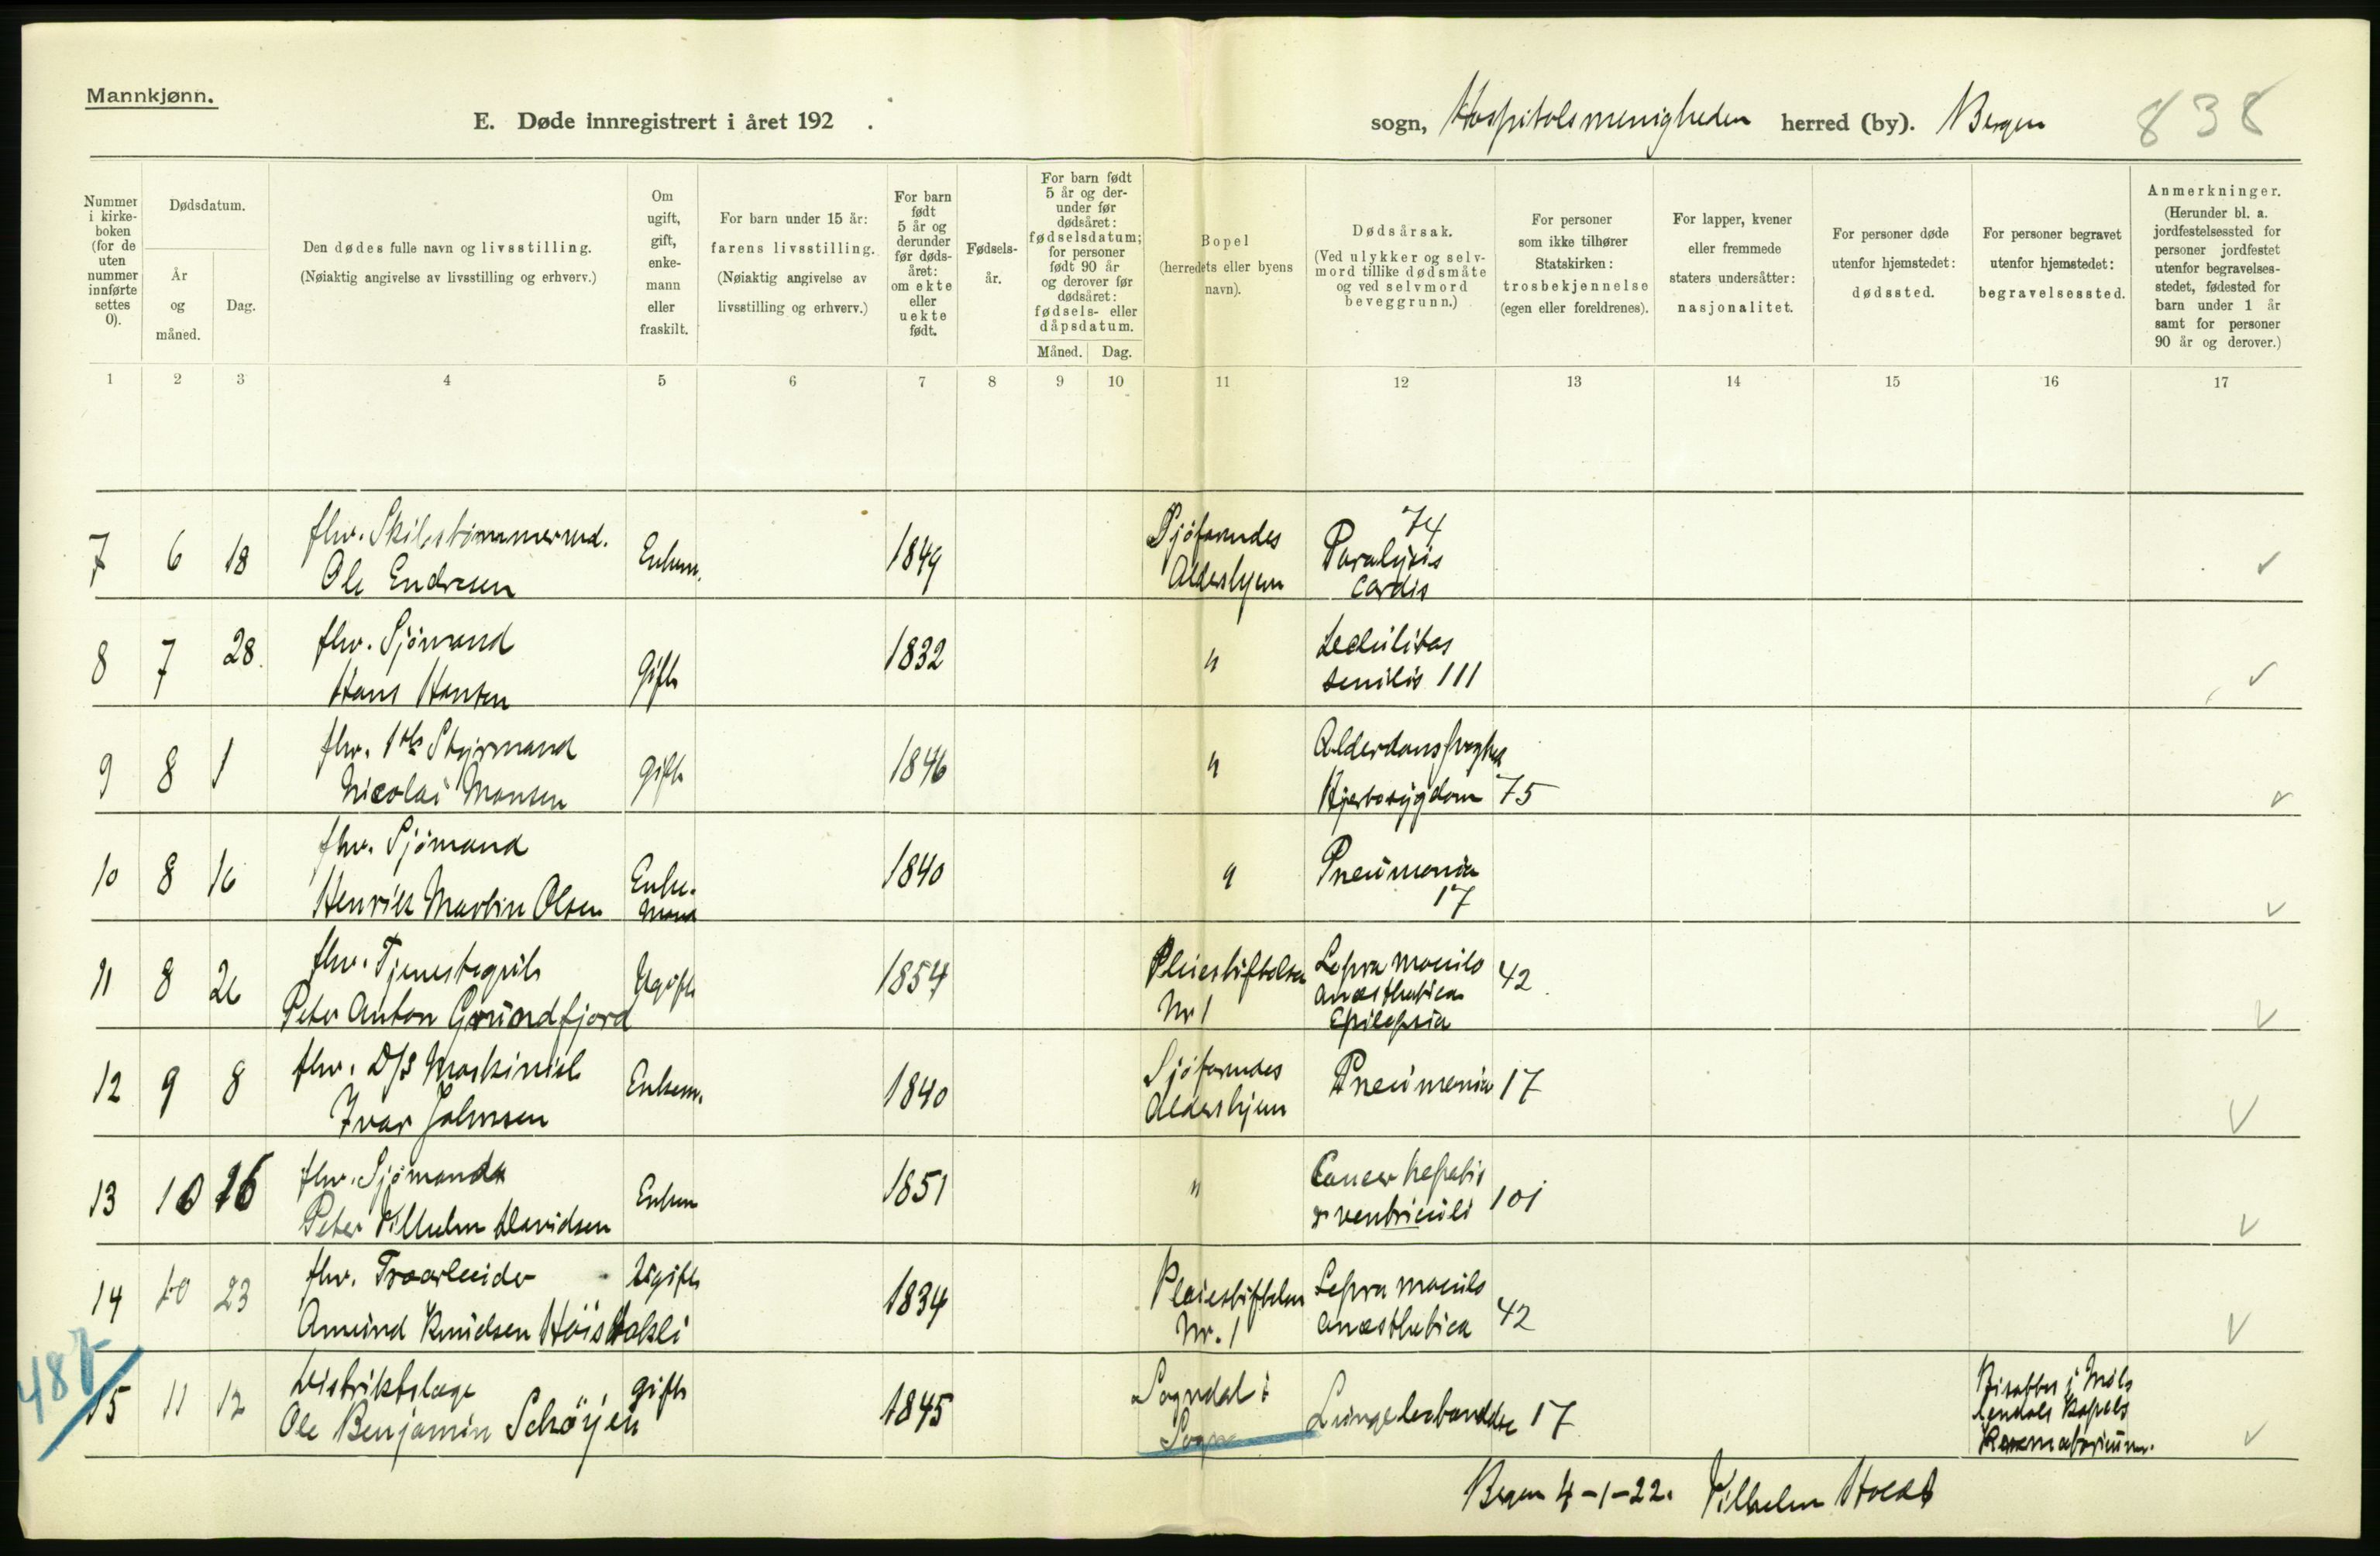 Mannkjønn.
E. Døde innregistrert i året 192 .
sogn, Hospitalsmenigheden herred (by). Bergen
838
Nummer i kirke-boken (for de uten nummer innførte settes 0).
Dødsdatum.
År og måned.
Dag.
Den dødes fulle navn og livsstilling.
(Nøiaktig angivelse av livsstilling og erhverv.)
Om ugift, gift, enke-mann eller fraskilt.
For barn under 15 år: farens livsstilling.
(Nøiaktig angivelse av livsstilling og erhverv.)
For barn født 5 år og derunder før døds-året: om ekte eller uekte født.
Fødsels-år.
For barn født 5 år og der-under før dødsåret: fødselsdatum; for personer født 90 år og derover før dødsåret: fødsels- eller dåpsdatum.
Måned. Dag.
Bopel (herredets eller byens navn).
Dødsårsak.
(Ved ulykker og selv-mord tillike dødsmåte og ved selvmord beveggrunn.)
For personer som ikke tilhører Statskirken: trosbekjennelse (egen eller foreldrenes).
For lapper, kvener eller fremmede staters undersåtter: nasjonalitet.
For personer døde utenfor hjemstedet: dødssted.
For personer begravet utenfor hjemstedet: begravelsessted.
Anmerkninger.
(Herunder bl. a. jordfestelsessted for personer jordfestet utenfor begravelses-stedet, fødested for barn under 1 år samt for personer 90 år og derover.)
1 2 3 4 5 6 7 8 9 10 11 12 13 14 15 16 17
7 6 18 fhv. Skibstømmermd. Ole Endresen Enkem. 1849 Sjöfarendes Aldershjem 74 Paralysis cordis ✓
8 7 28. fhv. Sjömand Hans Hansen Gift 1832 " Debilitas senilis 111 ✓
9 8 1 fhv. 1ste Styrmand Nicolai Monsen gift 1846 " Hjertesygdom 75 ✓
10 8 16 fhv. Sjömand Henrik Martin Olsen Enke-mand 1840 " Pneumonia 17 ✓
11 8 26 fhv. Tjenestegut Peter Anton Grundfjord Ugift 1854 Pleiestiftelsen Nr 1 Lepra maculo anæsthetica Epilepsia 42 ✓
12 9 8 fhv. D/S Maskinist Ivar Johnsen Enkem. 1840 Sjöfarendes Aldershjem Pneumonia 17 ✓
13 10 16 fhv. Sjömand Peter Vilhelm Davidsen Enkem 1851 " Cancer hepatis & ventriculi 101 ✓
14 10 23 fhv. Amund Knudsen Ugift 1834 Pleiestiftelsen Nr. 1 Lepra maculo anæsthetica 42 ✓
487
15 11 12 Distriktslæge Ole Benjamin Schörjen gift 1845 Sogndal i Sogn Lungebetændelse 17 Bisattes i Möllendals Kapels Krematorium. ✓
Bergen 4-1-22. Vilhelm Holdt